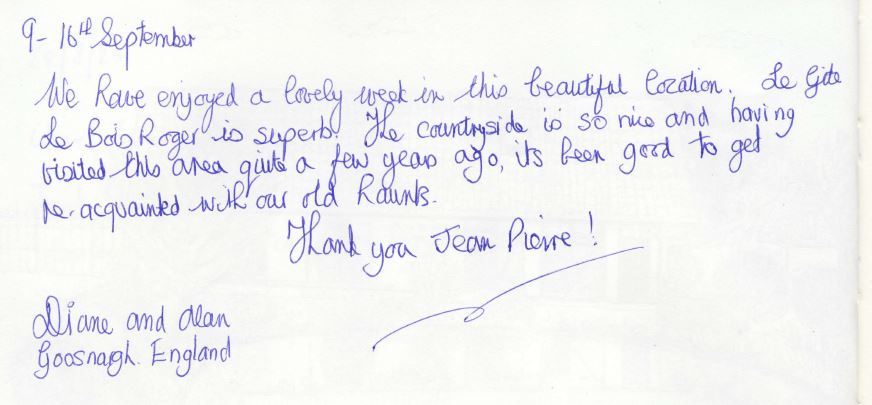 9-16th September
We have enjoyed a lovely week in this beautiful location. Le Gite
Le Bois Roger is superb! The countryside is so nice and having
visited this area quite a few years ago, its been good to get
re-acquainted with our old haunts.
Thank you Jean Pierre!
Diane and Alan
Goosnargh. England